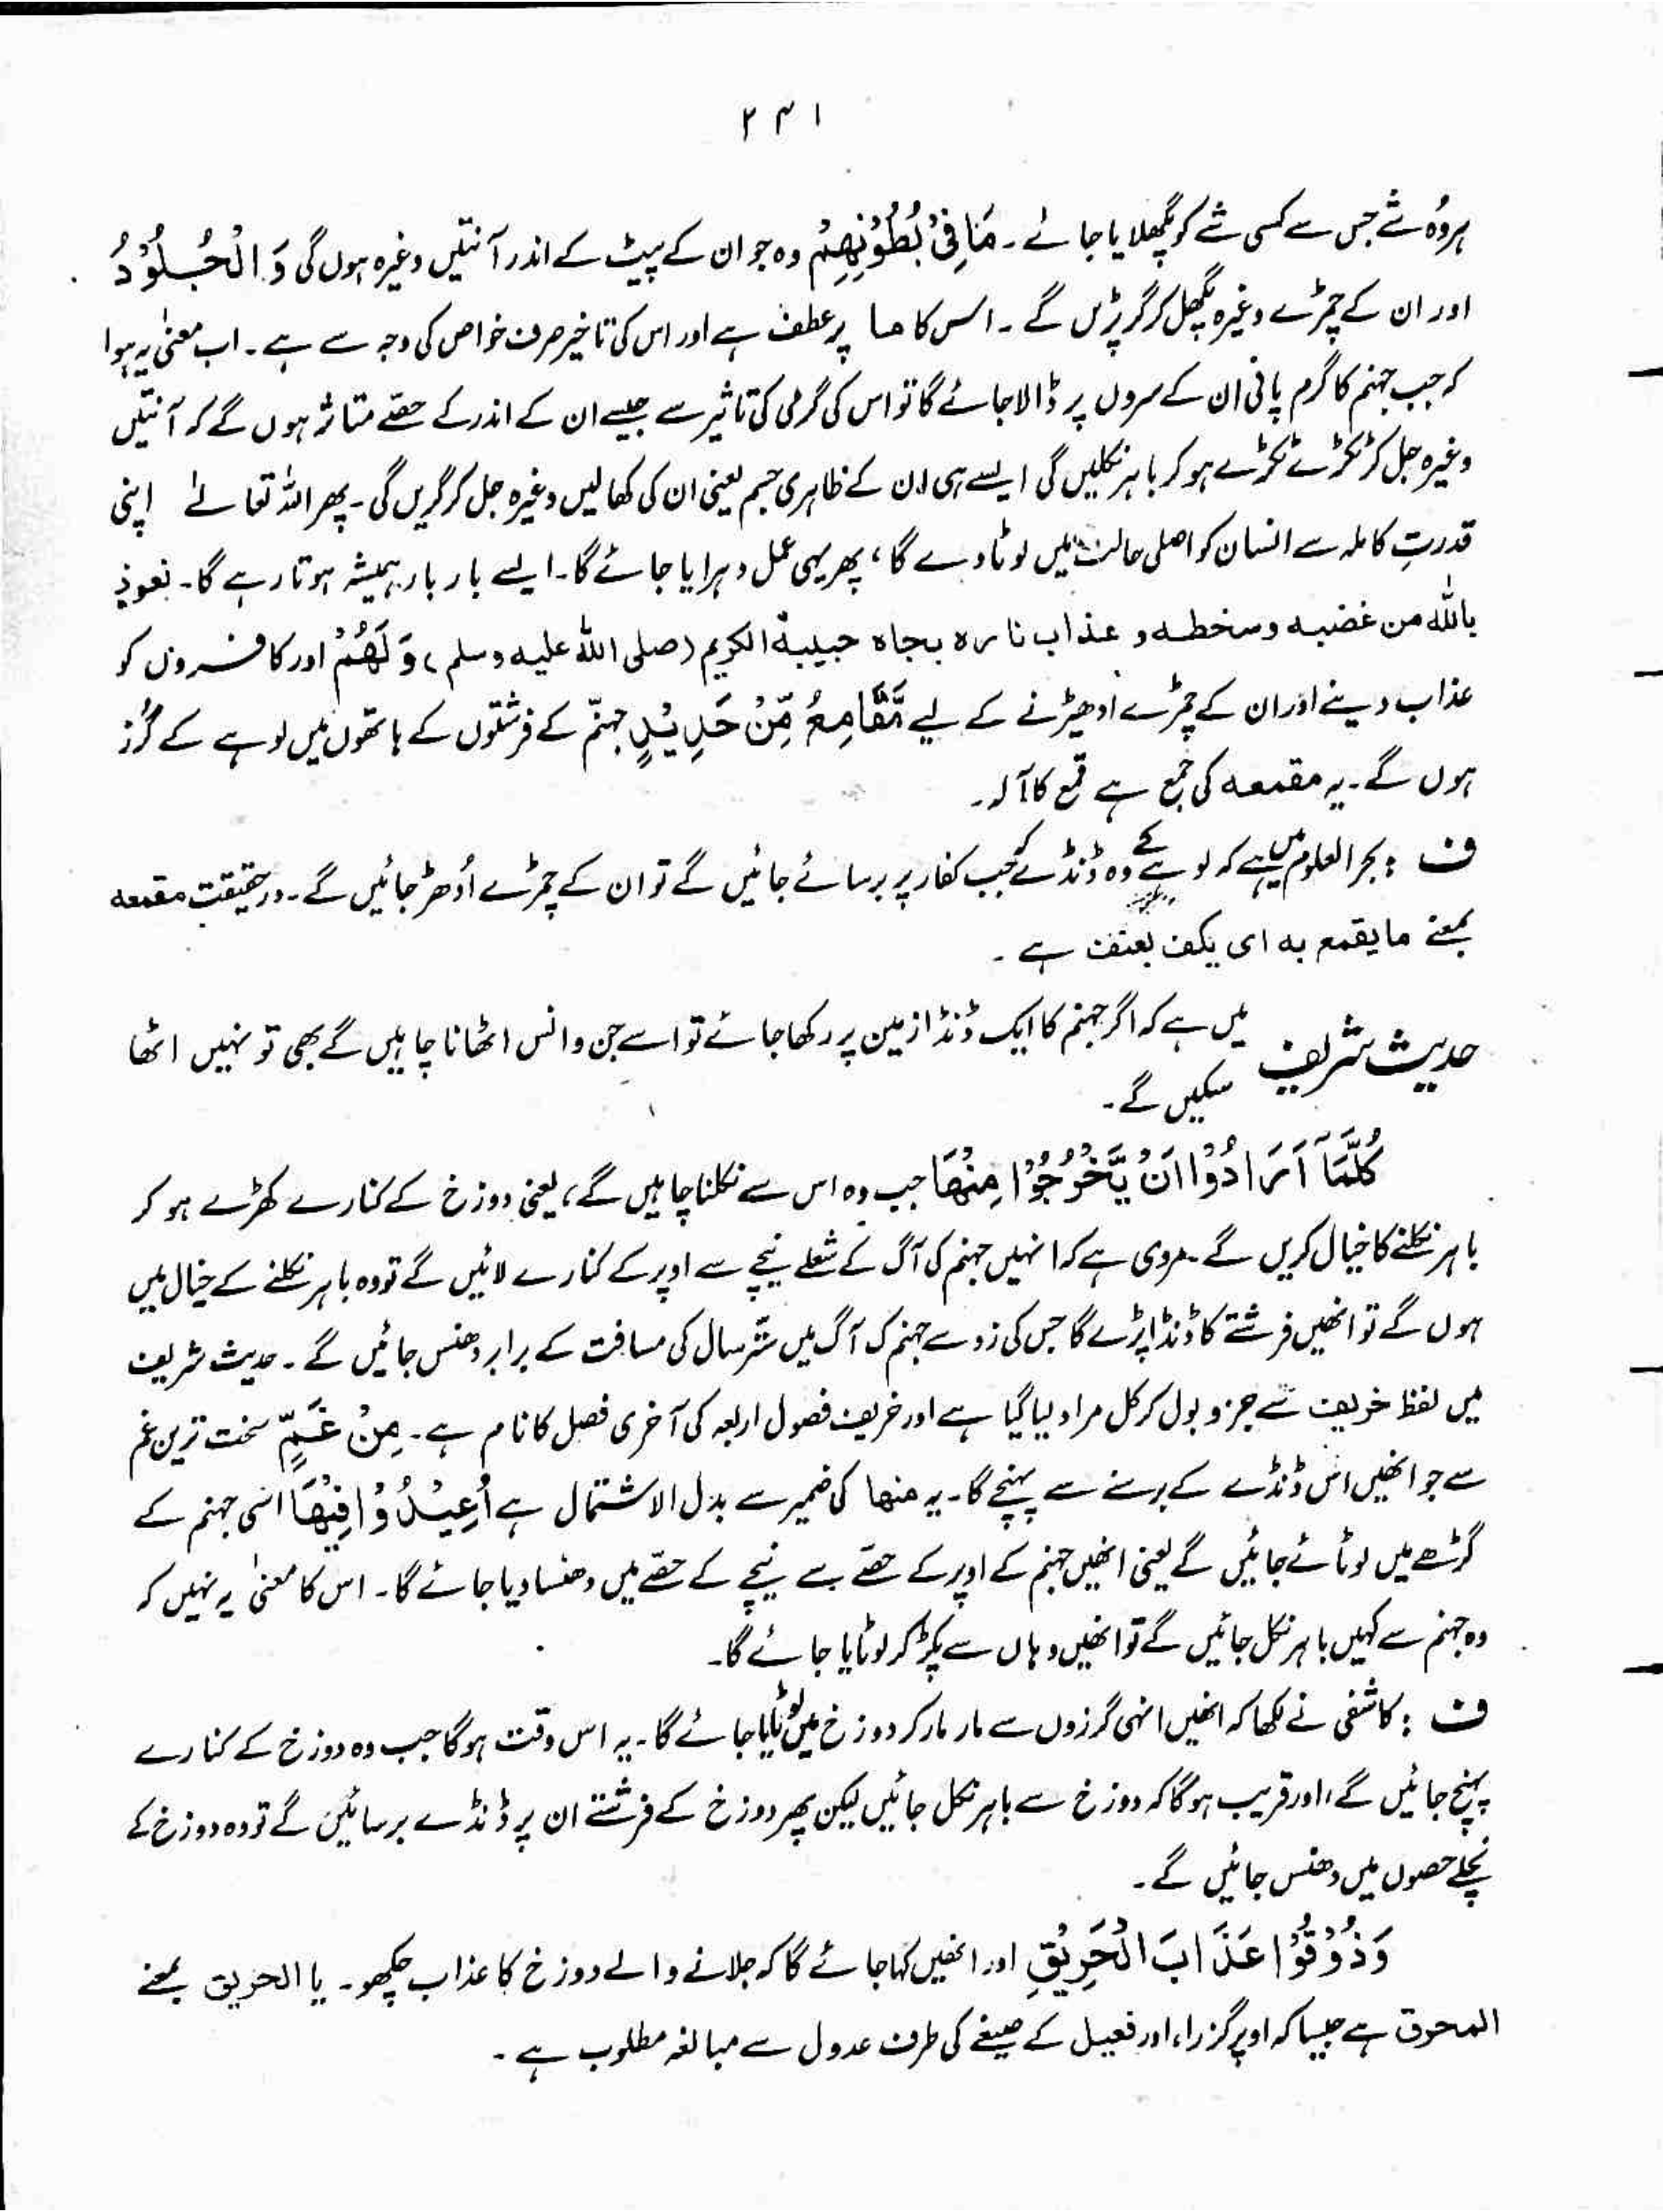 ۲۳۱
ہر وُہ شے جس سے کسی شے کو پگھلایا جائے۔ مَا فِیْ بُطُوْنِھِمْ وہ جو ان کے پیٹ کے اندر آنتیں وغیرہ ہوں گی وَ الْجُلُوْدُ
اور ان کے چمڑے وغیرہ پگھل کر گر پڑیں گے۔ اس کا ما پر عطف ہے اور اس کی تاخیر صرف خواص کی وجہ سے ہے۔ اب معنیٰ یہ ہوا
کہ جب جہنم کا گرم پانی ان کے سروں پر ڈالا جائے گا تو اس کی گرمی کی تاثیر سے جیسے ان کے اندر کے حصے متاثر ہوں گے کہ آنتیں
وغیرہ جل کر ٹکڑے ٹکڑے ہو کر باہر نکلیں گی ایسے ہی ان کے ظاہری جسم یعنی ان کی کھالیں وغیرہ جل کر گریں گی۔ پھر اللہ تعالےٰ اپنی
قدرتِ کاملہ سے انسان کو اصلی حالت میں لوٹا دے گا، پھر یہی عمل دہرایا جائے گا۔ ایسے بار بار ہمیشہ ہوتا رہے گا۔ نعوذ
باللہ من غضبہ وسخطہ و عذاب نارہ بجاہ حبیبہ الکریم (صلی اللہ علیہ وسلم) وَ لَھُمْ اور کافروں کو
عذاب دینے اور ان کے چمڑے اُدھیڑنے کے لیے مَّقَامِعُ مِنْ حَدِیْدٍ جہنّم کے فرشتوں کے ہاتھوں میں لوہے کے گُرز
ہوں گے۔ یہ مقمعہ کی جمع ہے قمع کا آلہ۔
ف : بحر العلوم میں ہے کہ لوہے کے وہ ڈنڈے کہ جب کفار پر برسائے جائیں گے تو ان کے چمڑے اُدھڑ جائیں گے۔ درحقیقت مقمعہ
بمعنے ما یقمع بہ ای یکف بعنف ہے۔
حدیث شریف میں ہے کہ اگر جہنم کا ایک ڈنڈا زمین پر رکھا جائے تو اسے جن و انس اٹھانا چاہیں گے بھی تو نہیں اٹھا
سکیں گے۔
کُلَّمَآ اَرَادُوْا اَنْ یَّخْرُجُوْا مِنْھَا جب وہ اس سے نکلنا چاہیں گے، یعنی دوزخ کے کنارے کھڑے ہو کر
باہر نکلنے کا خیال کریں گے۔ مروی ہے کہ انہیں جہنم کی آگ کے شعلے نیچے سے اوپر کے کنارے لائیں گے تو وہ باہر نکلنے کے خیال میں
ہوں گے تو انھیں فرشتے کا ڈنڈا پڑے گا جس کی زد سے جہنم کی آگ میں ستّر سال کی مسافت کے برابر دھنس جائیں گے۔ حدیث شریف
میں لفظ خریف سے جزو بول کر کل مراد لیا گیا ہے اور خریف فصول اربعہ کی آخری فصل کا نام ہے۔ مِنْ غَمٍّ سخت ترین غم
سے جو انھیں اس ڈنڈے کے برسنے سے پہنچے گا۔ یہ منھا کی ضمیر سے بدل الاشتمال ہے اُعِیْدُوْا فِیْھَا اسی جہنم کے
گڑھے میں لوٹائے جائیں گے یعنی انھیں جہنم کے اوپر کے حصّے سے نیچے کے حصّے میں دھنسا دیا جائے گا۔ اس کا معنیٰ یہ نہیں کہ
وہ جہنم سے کہیں باہر نکل جائیں گے تو انھیں وہاں سے پکڑ کر لوٹایا جائے گا۔
ف : کاشفی نے لکھا کہ انھیں انہی گرزوں سے مار مار کر دوزخ میں لوٹایا جائے گا۔ یہ اس وقت ہوگا جب وہ دوزخ کے کنارے
پہنچ جائیں گے، اور قریب ہوگا کہ دوزخ سے باہر نکل جائیں لیکن پھر دوزخ کے فرشتے ان پر ڈنڈے برسائیں گے تو وہ دوزخ کے
نچلے حصوں میں دھنس جائیں گے۔
وَذُوْقُوْا عَذَابَ الْحَرِیْقِ اور انھیں کہا جائے گا کہ جلانے والے دوزخ کا عذاب چکھو۔ یا الحریق بمعنے
المحرق ہے جیسا کہ اوپر گزرا، اور فعیل کے صیغے کی طرف عدول سے مبالغہ مطلوب ہے۔